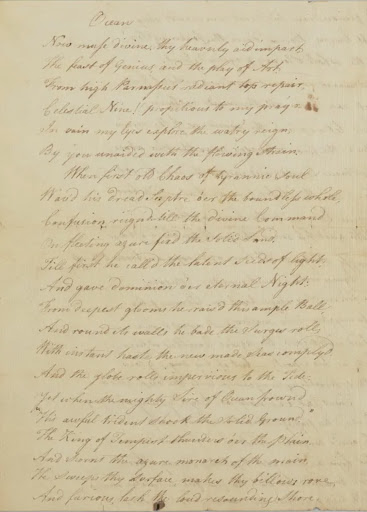 Ocean
Now muse divine, thy heavenly aid impart
The feast of Genius and the play of Art.
From high Parnassus radiant top repair,
Celestial Nine! propitious to my pray'r.
In vain my Eyes explore the watry reign,
By you unaided with the flowing strain.
When first old Chaos of tyrannic soul
Wav'd his dread Sceptre o'er the boundless whole,
Confusion reign'd till the divine Command
On floating azure fix'd the Solid Land,
Till first he call'd the latent seeds of light,
And gave dominion o'er eternal Night.
From deepest glooms he rais'd this ample Ball,
And round its walls he bade its Surges roll,
With instant haste the new made seas comply'd,
And the globe rolls impervious to the Tide;
Yet when the mighty Sire of Ocean frown'd
"His awful trident shook the solid Ground."
The King of Tempest thunders o'er the plain,
And scorns the azure monarch of the main,
He sweeps thy surface, makes thy billows rore,
And furious, lash the loud resounding Shore.